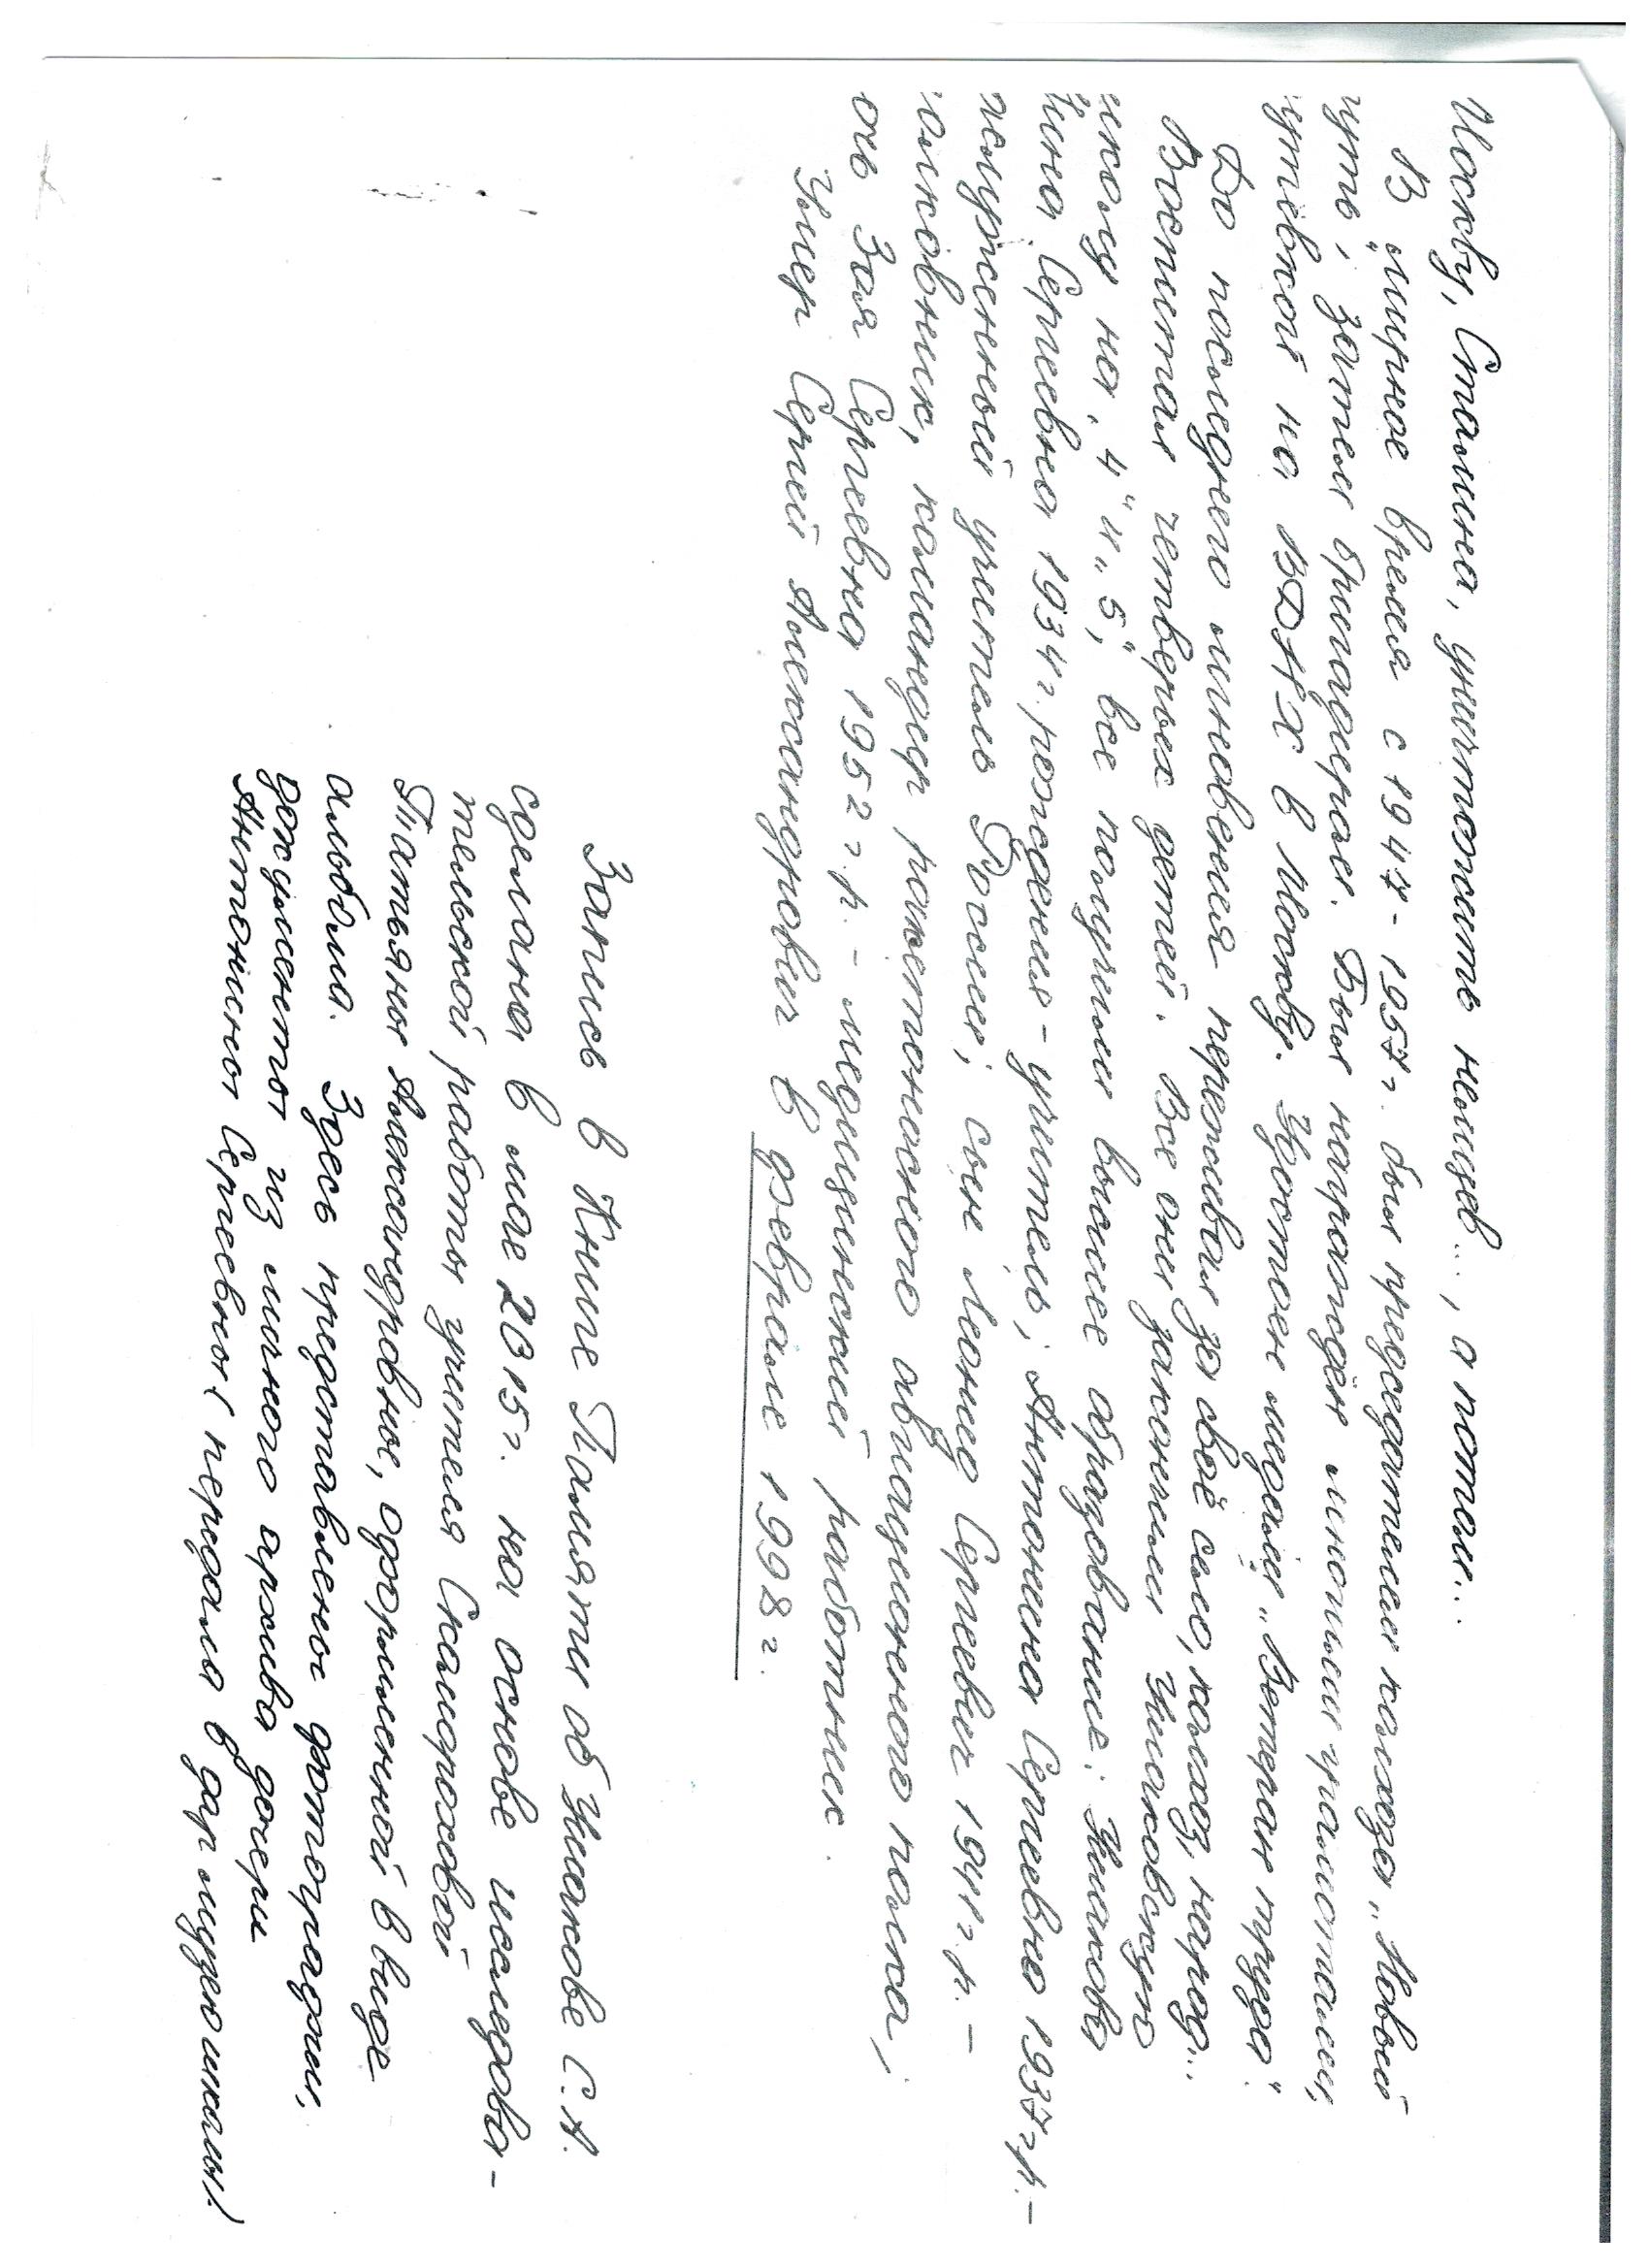 Москву, Сталина, уничтожать немцев..., а потом...
В мирное время с 1947-1957г. был председателем колхоза „Новый
путь", затем бригадиром. Был награждён многими грамотами,
путёвкой на ВДНХ в Москву. Удостоен медали „Ветеран труда".
До последнего мгновения переживал за своё село, колхоз, народ...
Воспитал четверых детей. Все они закончили Ушаковскую
школу на „4" и „5", все получили высшее образование: Ушакова
Нина Сергеевна 1934г. рождения - учитель; Антонина Сергеевна 1937г.р. -
заслуженный учитель России; сын Леонид Сергеевич 1941г.р. -
полковник, командир ракетоносного авиационного полка,
дочь Зоя Сергеевна 1952г.р. - медицинский работник.
Умер Сергей Александрович в феврале 1998г.
Запись в Книге Памяти об Ушакове С.А.
сделана в мае 2015г. на основе исследова-
тельской работы учителя Скомороховой
Татьяны Александровны, оформленной в виде
альбома. Здесь представлены фотографии,
документы из личного архива дочери
Антонины Сергеевны (передала в дар музею школы)